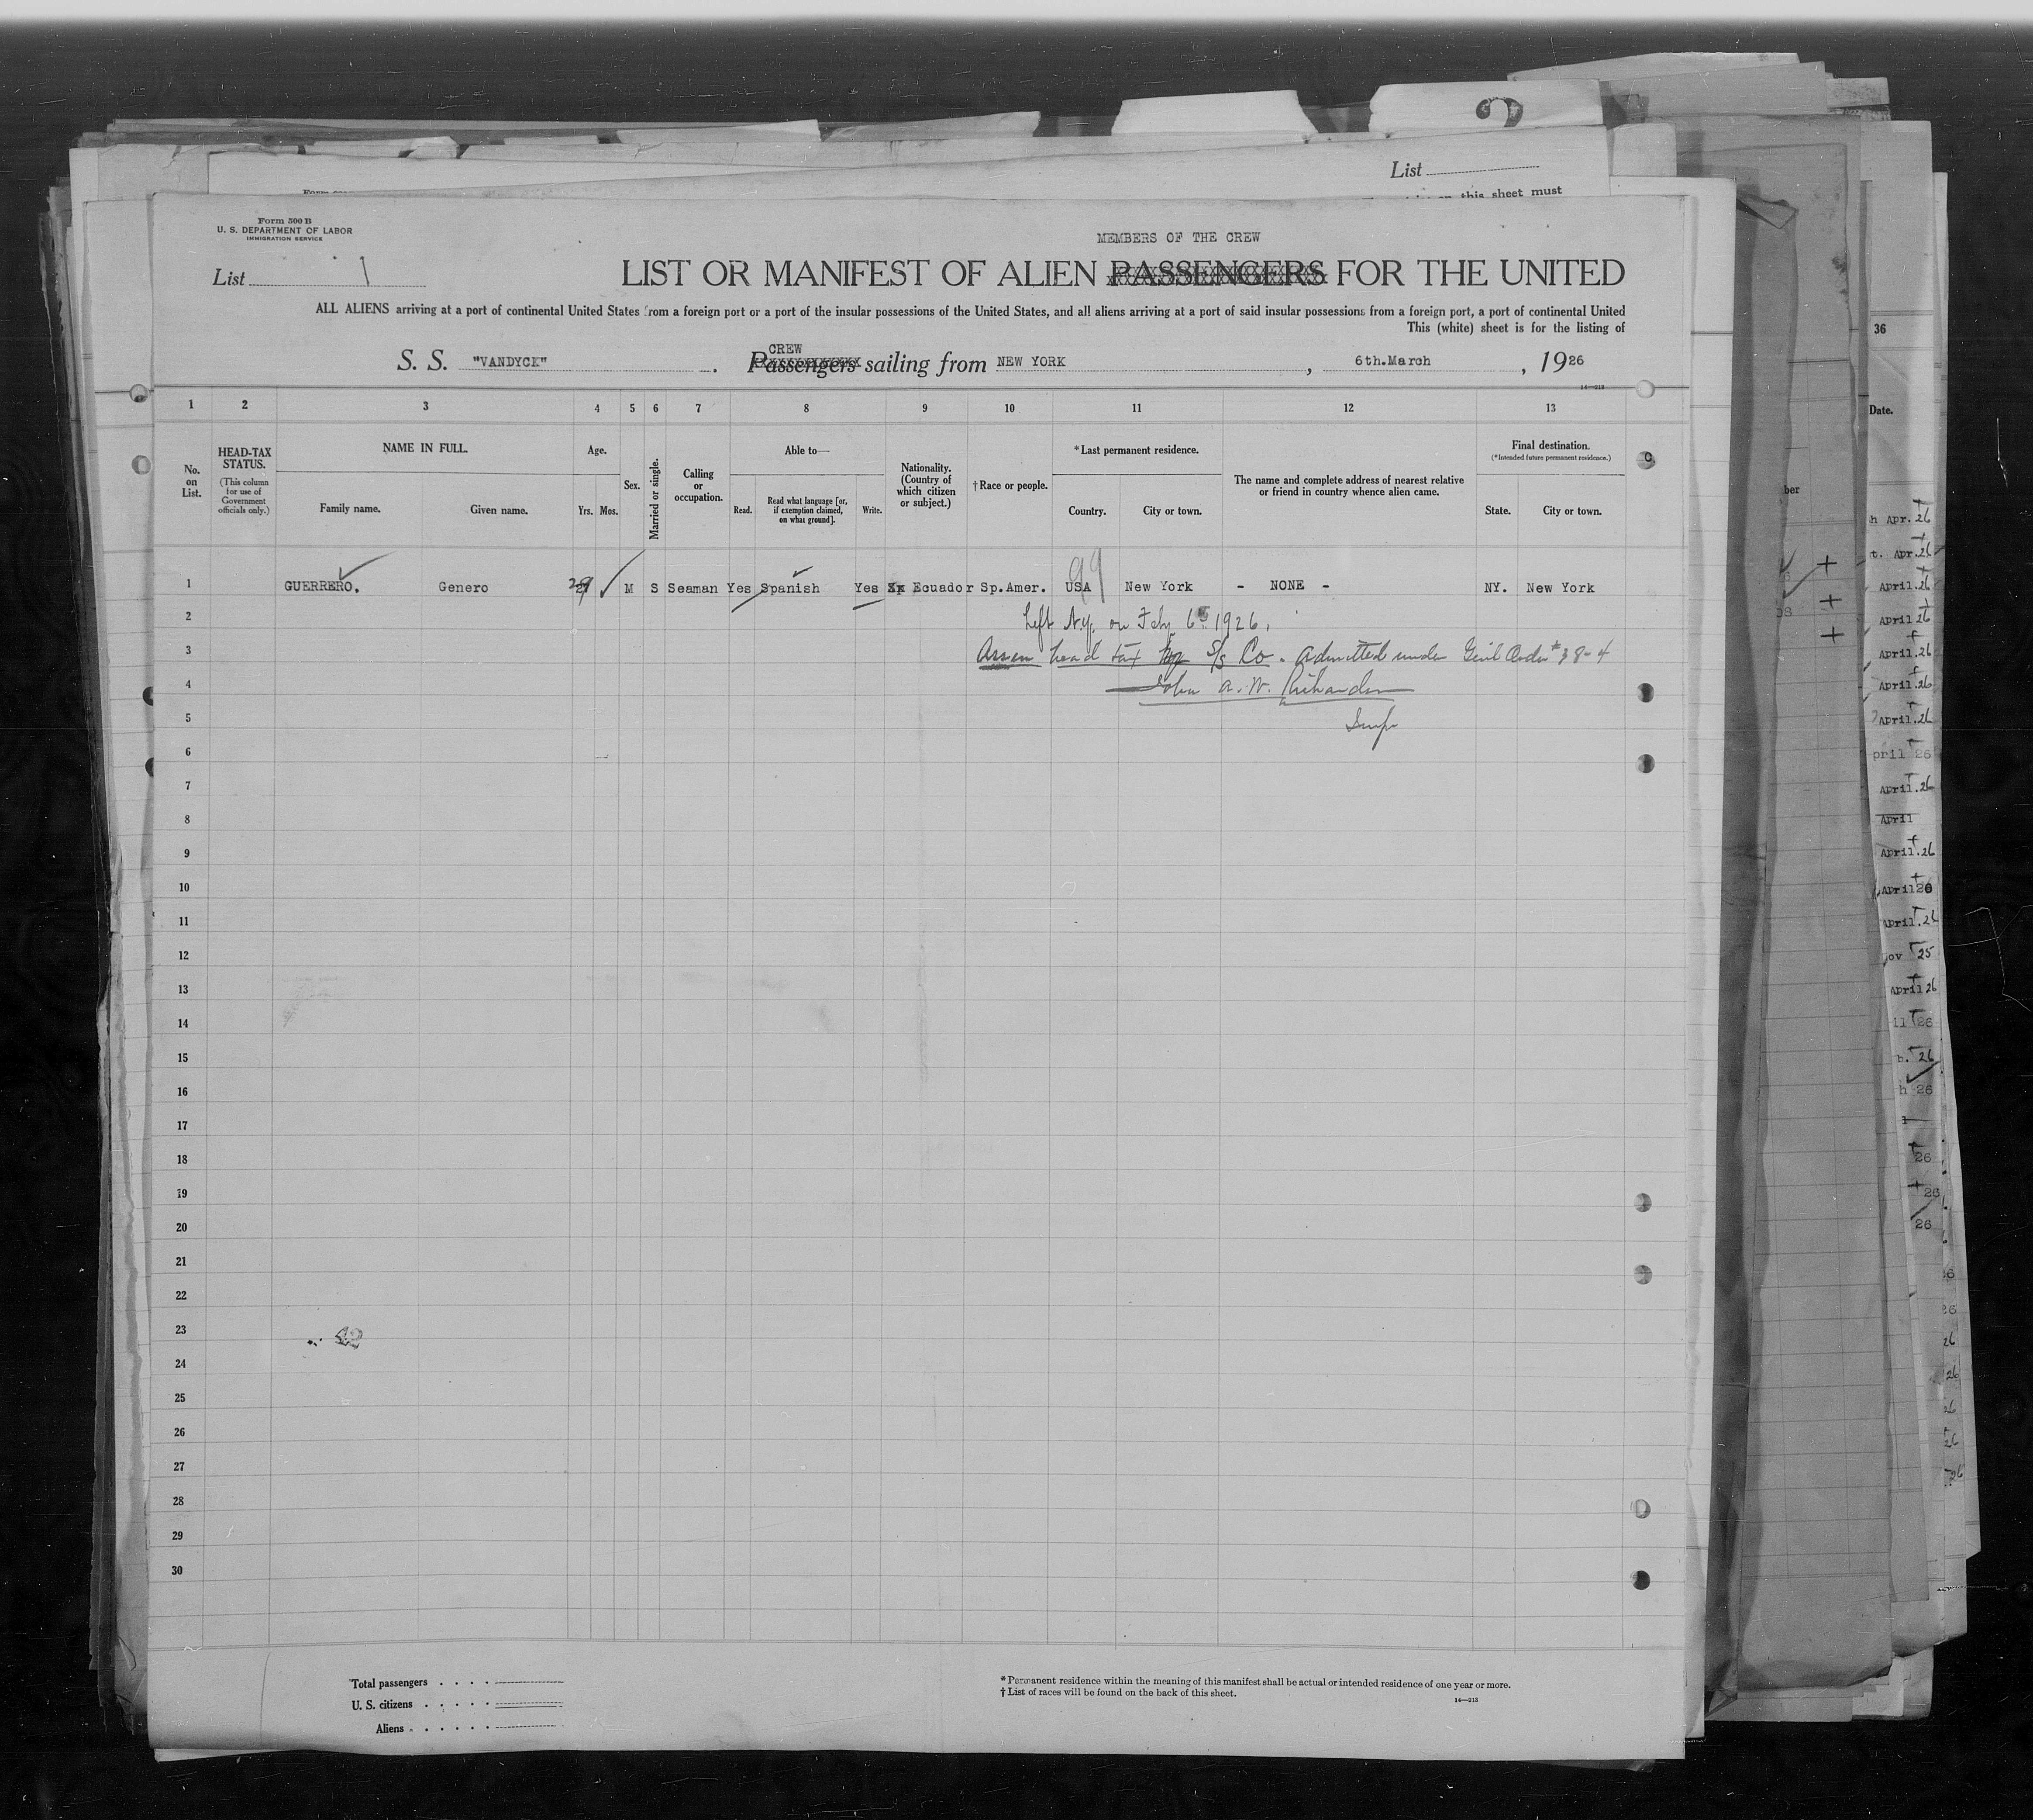 2
List
this sheet must
Form 500 B
U. S. DEPARTMENT OF LABOR
IMMIGRATION SERVICE
MEMBERS OF THE CREW
List 1
LIST OR MANIFEST OF ALIEN PASSENGERS FOR THE UNITED
ALL ALIENS arriving at a port of continental United States from a foreign port or a port of the insular possessions of the United States, and all aliens arriving at a port of said insular possessions from a foreign port, a port of continental United
This (white) sheet is for the listing of
CREW
S. S. "VANDYCK". Passengers sailing from NEW YORK, 6th.March, 1926
14—213
1 2 3 4 5 6 7 8 9 10 11 12 13
No. on List.
HEAD-TAX STATUS.
(This column for use of Government officials only.)
NAME IN FULL.
Family name. Given name.
Age.
Yrs. Mos.
Sex.
Married or single.
Calling or occupation.
Able to—
Read. Read what language [or, if exemption claimed, on what ground]. Write.
Nationality. (Country of which citizen or subject.)
†Race or people.
*Last permanent residence.
Country. City or town.
The name and complete address of nearest relative or friend in country whence alien came.
Final destination.
(*Intended future permanent residence.)
State. City or town.
1 GUERRERO. Genero 29 M S Seaman Yes Spanish Yes Ecuador Sp.Amer. USA New York - NONE - NY. New York
99
2 Left N.Y. on Feby 6th 1926.
3 Assess head tax S/S Co. Admitted under Genl Order #38-4
4 John A. W. Richardson
5 Insp
6
7
8
9
10
11
12
13
14
15
16
17
18
19
20
21
22
23
24
25
26
27
28
29
30
Total passengers . . . .
U. S. citizens . . . . .
Aliens . . . . . .
*Permanent residence within the meaning of this manifest shall be actual or intended residence of one year or more.
†List of races will be found on the back of this sheet.
14—213
36
Date.
ber
h Apr. 26
t. Apr. 26
April 26
April 26
April. 26
April. 26
April. 26
pril 26
April. 26
April
April. 26
April 26
April. 26
ov 25
April 26
il 26
b. 26
h 26
26
26
26
26
26
26
26
26
26
26